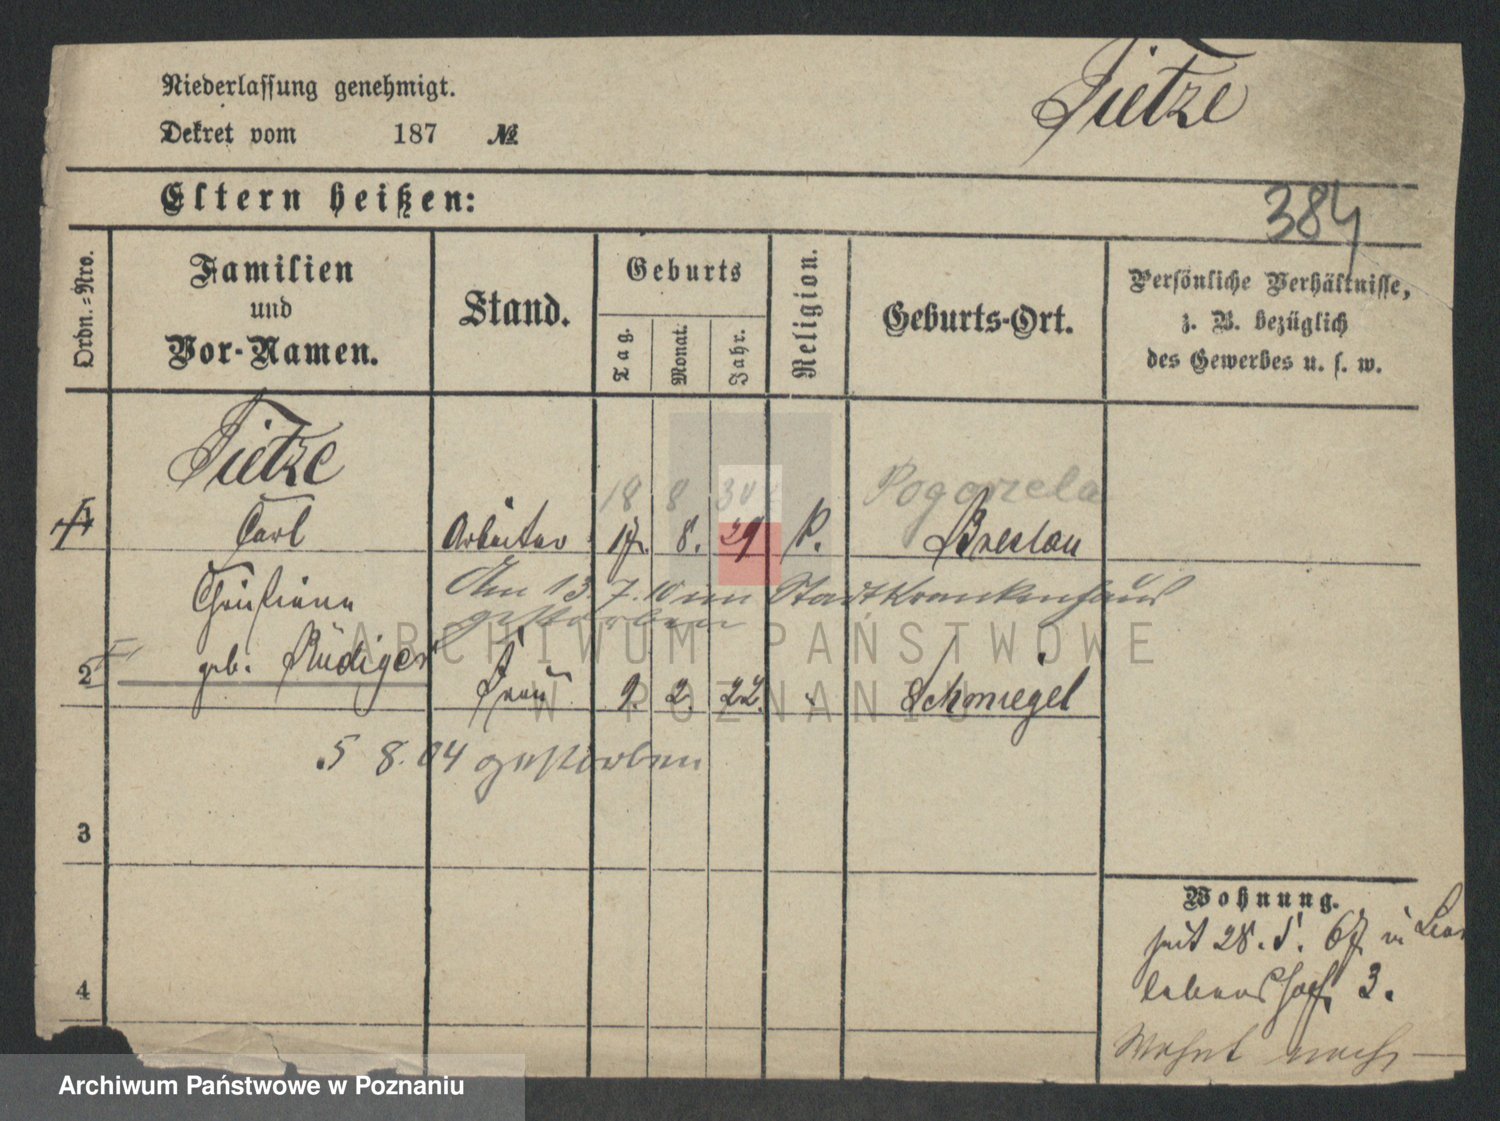 Niederlassung genehmigt.
Tietze
Dekret vom 187 №
Eltern heißen:
384
Ordn.=Nro.
Familien
und
Vor-Namen.
Stand.
Geburts
Tag.
Monat.
Jahr.
Religion.
Geburts-Ort.
Persönliche Verhältnisse,
z. B. bezüglich
des Gewerbes u. s. w.
Tietze
18 8 30 Pogorzela
1 Carl Arbeiter 17. 8. 29 P. Breslau
Christiane
Am 13.7.10 im Stadtkrankenhaus
gestorben
2 geb. Rüdiger
Frau 9. 2. 22. Schmiegel
5 8.04 gestorben
3
4
Wohnung.
seit 28. 67 in
3.
Wohnt noch
ARCHIWUM PAŃSTWOWE
W POZNANIU
Archiwum Państwowe w Poznaniu